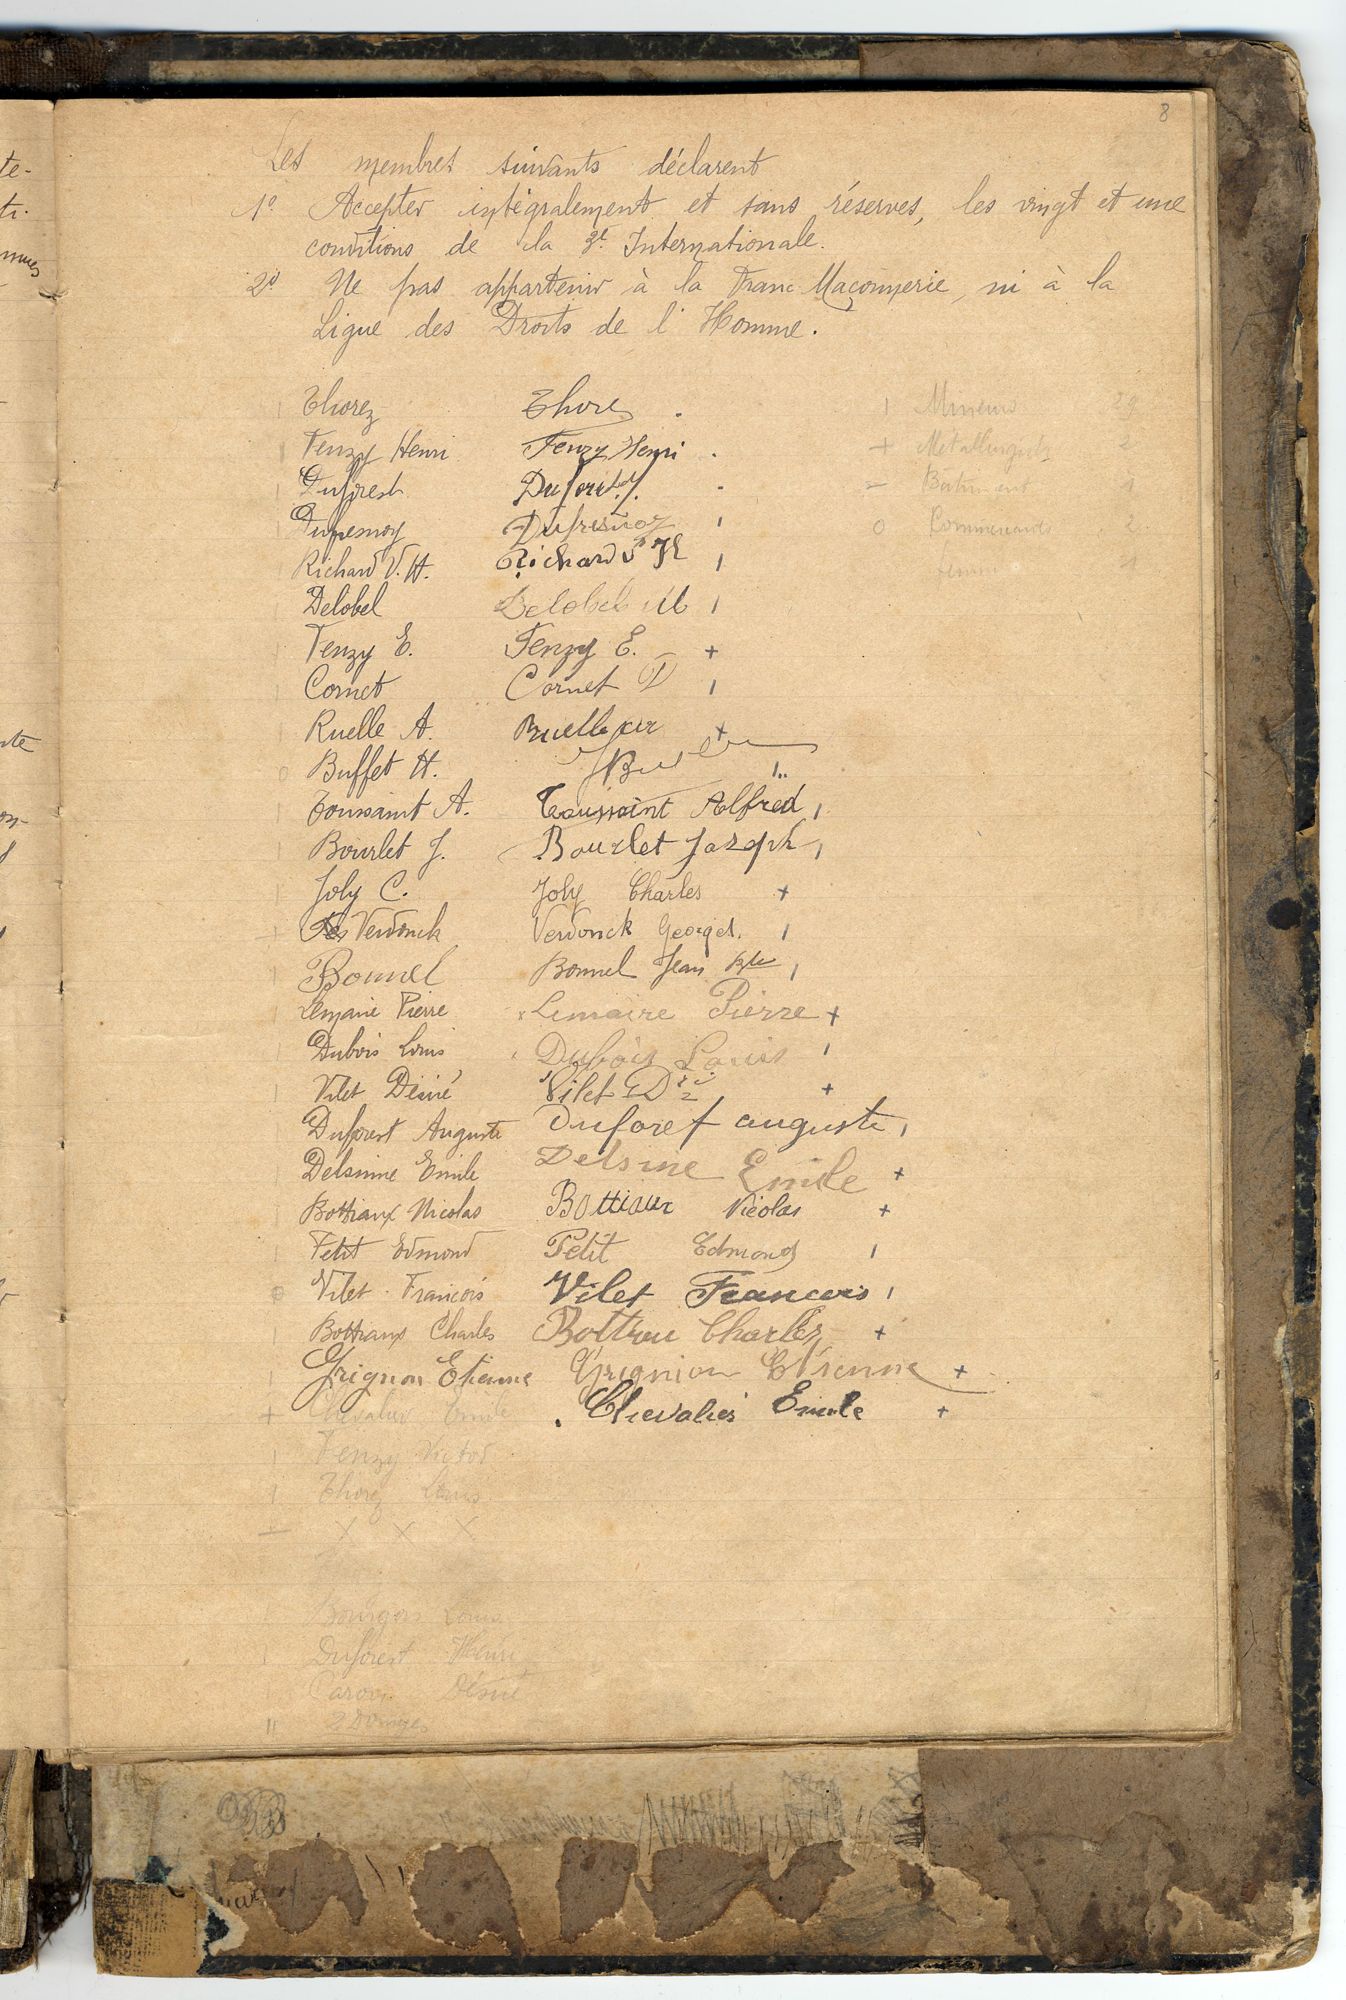 8
Les membres suivants déclarent
1° Accepter intégralement et sans réserves, les vingt et une
conditions de la 3e Internationale.
2° Ne pas appartenir à la Franc Maçonnerie, ni à la
Ligue des Droits de l'Homme.
Thorez Thorez
Fenzy Henri Fenzy Henri
Duforest Duforest
Dufresnoy Dufresnoy
Richard V. H. Richard V H
Delobel Delobel M
Fenzy E. Fenzy E. +
Cornet Cornet D
Ruelle A. Ruelle +
Buffet H.
Toussaint A. Toussaint Alfred
Bourlet J. Bourlet Joseph
Joly C. Joly Charles +
Verdonck Verdonck Georges
Bonnel Bonnel Jean Bte
Lemaire Pierre Lemaire Pierre +
Dubois Louis Dubois Louis
Vilet Désiré Vilet Dré +
Duforest Auguste Duforest auguste
Delsinne Emile Delsine Emile +
Bottiaux Nicolas Bottiaux Nicolas +
Petit Edmond Petit Edmond
Vilet François Vilet Francois
Bottiaux Charles Bottiau Charles +
Grignon Etienne Grignion Etienne +
+ Chevalier Emile Chevalier Emile +
Fenzy Victor
Thorez Louis
X X X
Bourgois Louis
Duforest Henri
Caron Désiré
" 2 Dames
| Mineurs 29
+ Métallurgiste 2
= Bâtiment 1
0 Commercants 2